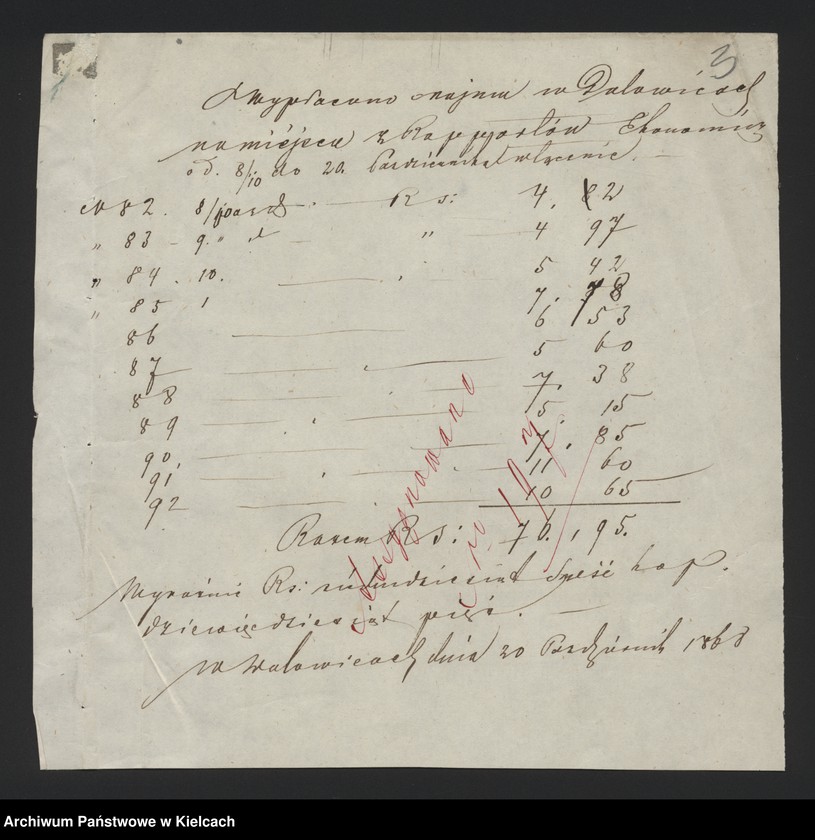 3
Wypłacono najmu w Dalowicach
na miejscu z Rapportów Ekonomicz
od. 8/10 do 20. Października włącznie.
No 82. 8/10 Rs: 4. 82
" 83 - 9. " " 4 97
" 84. 10. 5 42
" 85 1 7. 78
86 6 53
87 5 60
88 7. 38
89 5 15
90 7. 85
91, 11 60
92 10 65
Razem Rs: 70., 95.
Wyraźnie Rs: siedmdziesiąt kop.
dziewięćdziesiąt pięć.
w Dalowicach dnia 20 Październik 1868
Assygnowano
No 197
Archiwum Państwowe w Kielcach